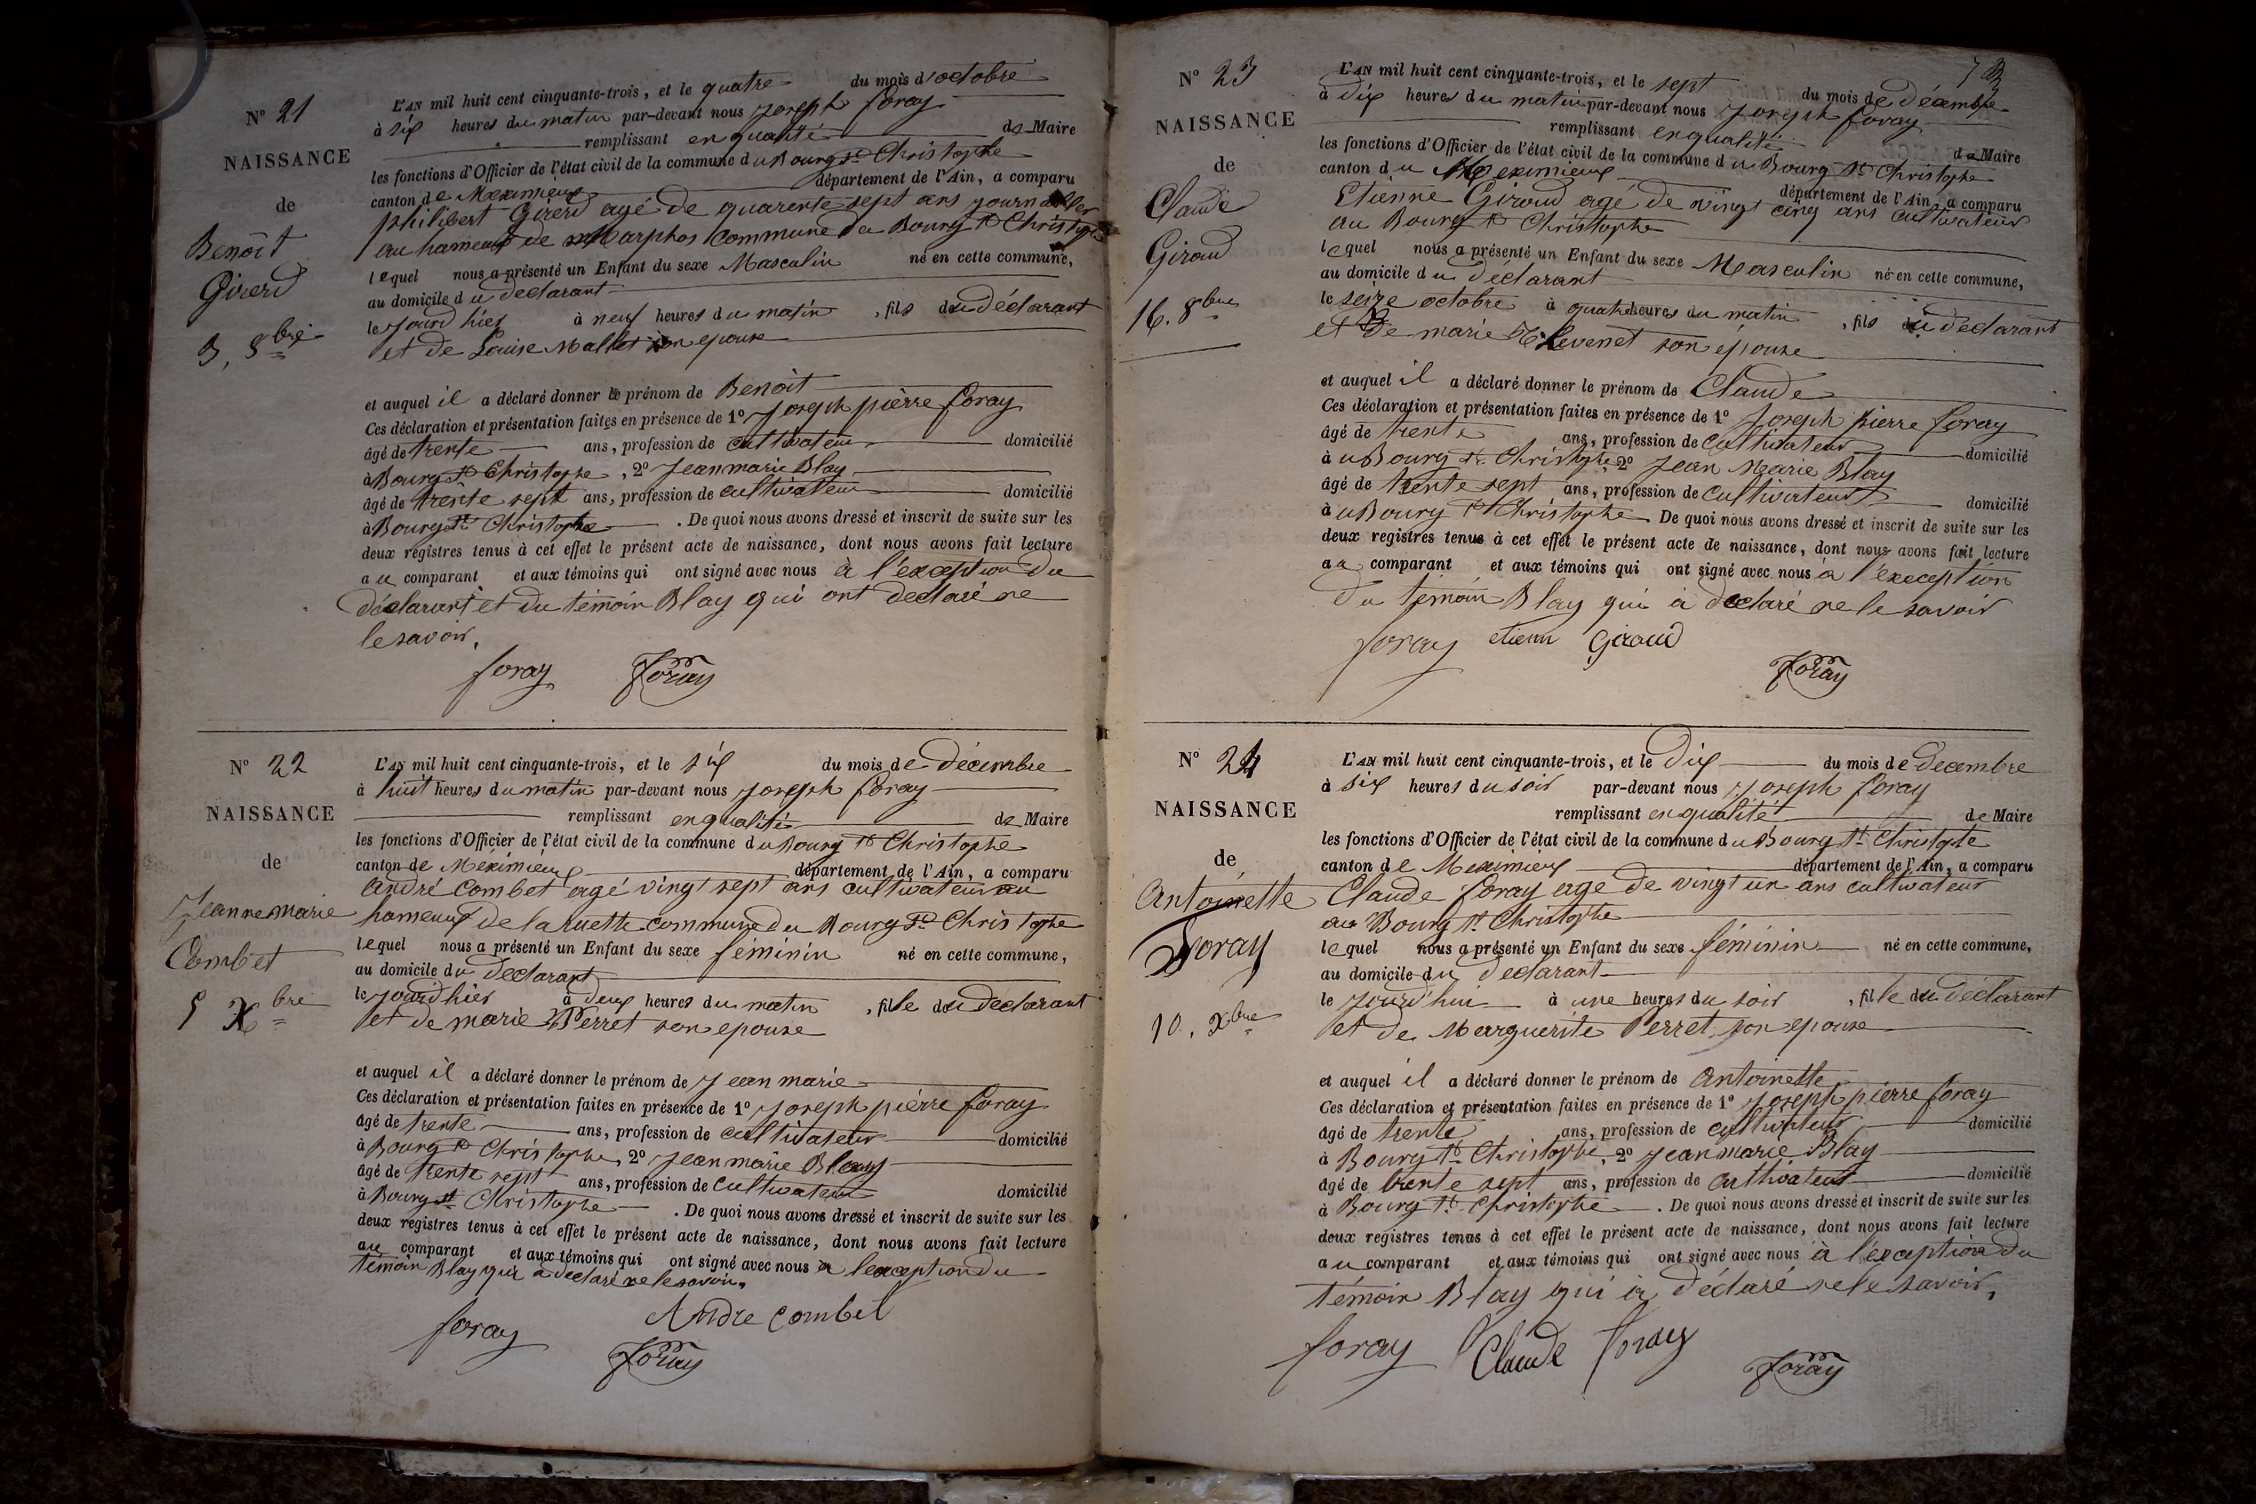 N° 21
NAISSANCE
de
Benoît
Girerd
3, 8bre
L'AN mil huit cent cinquante-trois, et le quatre du mois d'octobre
à six heures du matin par-devant nous Joseph foray
remplissant en qualité de Maire
les fonctions d'Officier de l'état civil de la commune du Bourg St Christophe
canton de Meximieux département de l'Ain, a comparu
philibert Girerd agé de quarente-sept ans journalier
au hameau de Marphos commune du Bourg St Christophe
lequel nous a présenté un Enfant du sexe Masculin né en cette commune,
au domicile du déclarant
le jourd'hier à neuf heures du matin, fils du déclarant
et de Louise Mallet son epouse
et auquel il a déclaré donner le prénom de Benoit
Ces déclaration et présentation faites en présence de 1° Joseph pièrre foray
âgé de trente ans, profession de cultivateur domicilié
à Bourg St Christophe, 2° Jeanmarie Blay
âgé de trente sept ans, profession de cultivateur domicilié
à Bourg St Christophe. De quoi nous avons dressé et inscrit de suite sur les
deux registres tenus à cet effet le présent acte de naissance, dont nous avons fait lecture
au comparant et aux témoins qui ont signé avec nous à l'exception du
déclarant et du témoin Blay qui ont declaré ne
le savoir.
foray Foray
N° 22
NAISSANCE
de
Jeannemarie
Combet
5 Xbre
L'AN mil huit cent cinquante-trois, et le six du mois de décembre
à huit heures du matin par-devant nous Joseph foray
remplissant en qualité de Maire
les fonctions d'Officier de l'état civil de la commune du Bourg St Christophe
canton de Méximieux département de l'Ain, a comparu
andré Combet agé vingt sept ans cultivateur au
hameau de la ruette commune du Bourg St Christophe
lequel nous a présenté un Enfant du sexe féminin né en cette commune,
au domicile du declarant
le jourd'hier à deux heures du matin, fille du declarant
et de marie Perret son epouse
et auquel il a déclaré donner le prénom de Jean marie
Ces déclaration et présentation faites en présence de 1° Joseph pièrre foray
âgé de trente ans, profession de cultivateur domicilié
à Bourg St Christophe, 2° Jeanmarie Blay
âgé de trente sept ans, profession de cultivateur domicilié
à Bourg St Christophe. De quoi nous avons dressé et inscrit de suite sur les
deux registres tenus à cet effet le présent acte de naissance, dont nous avons fait lecture
au comparant et aux témoins qui ont signé avec nous a lexception du
témoin Blay qui a declaré ne le savoir.
foray Andre Combet
Foray
N° 23
NAISSANCE
de
Claude
Giroud
16. 8bre
L'AN mil huit cent cinquante-trois, et le sept du mois de décembre
à dix heures du matin par-devant nous Joseph foray
remplissant en qualité de Maire
les fonctions d'Officier de l'état civil de la commune du Bourg St Christophe
canton du Meximieux département de l'Ain, a comparu
Etienne Giroud agé de vingt cinq ans cultivateur
au Bourg St Christophe
lequel nous a présenté un Enfant du sexe Masculin né en cette commune,
au domicile du déclarant
le seize octobre à quatre heures du matin, fils du déclarant
et de marie Thevenet son épouse
et auquel il a déclaré donner le prénom de Claude
Ces déclaration et présentation faites en présence de 1° Joseph pierre foray
âgé de trente ans, profession de cultivateur domicilié
à u Bourg St Christophe, 2° Jean Marie Blay
âgé de trente sept ans, profession de cultivateur domicilié
à u Bourg St Christophe De quoi nous avons dressé et inscrit de suite sur les
deux registres tenus à cet effet le présent acte de naissance, dont nous avons fait lecture
au comparant et aux témoins qui ont signé avec nous à l'exeception
du témoin Blay qui à declaré ne le savoir
foray etienn Giroud
Foray
N° 24
NAISSANCE
de
Antoinette
Foray
10. Xbre
L'AN mil huit cent cinquante-trois, et le Dix du mois de decembre
à six heures du soir par-devant nous Joseph foray
remplissant en qualité de Maire
les fonctions d'Officier de l'état civil de la commune du Bourg St Christophe
canton de Meximieux département de l'Ain, a comparu
Claude foray agé de vingt un ans cultivateur
au Bourg St Christophe
lequel nous a présenté un Enfant du sexe féminin né en cette commune,
au domicile du declarant
le jourd'hui à une heures du soir, fille du déclarant
et de Marguerite Perret son epouse
et auquel il a déclaré donner le prénom de Antoinette
Ces déclaration et présentation faites en présence de 1° Joseph pièrre foray
âgé de trente ans, profession de cultivateur domicilié
à Bourg St Christophe, 2° Jeanmarie Blay
âgé de trente sept ans, profession de cultivateur domicilié
à Bourg St Christophe. De quoi nous avons dressé et inscrit de suite sur les
deux registres tenus à cet effet le présent acte de naissance, dont nous avons fait lecture
au comparant et aux témoins qui ont signé avec nous à l'exception du
témoin Blay qui à déclaré ne le savoir.
foray Claude foray
Foray